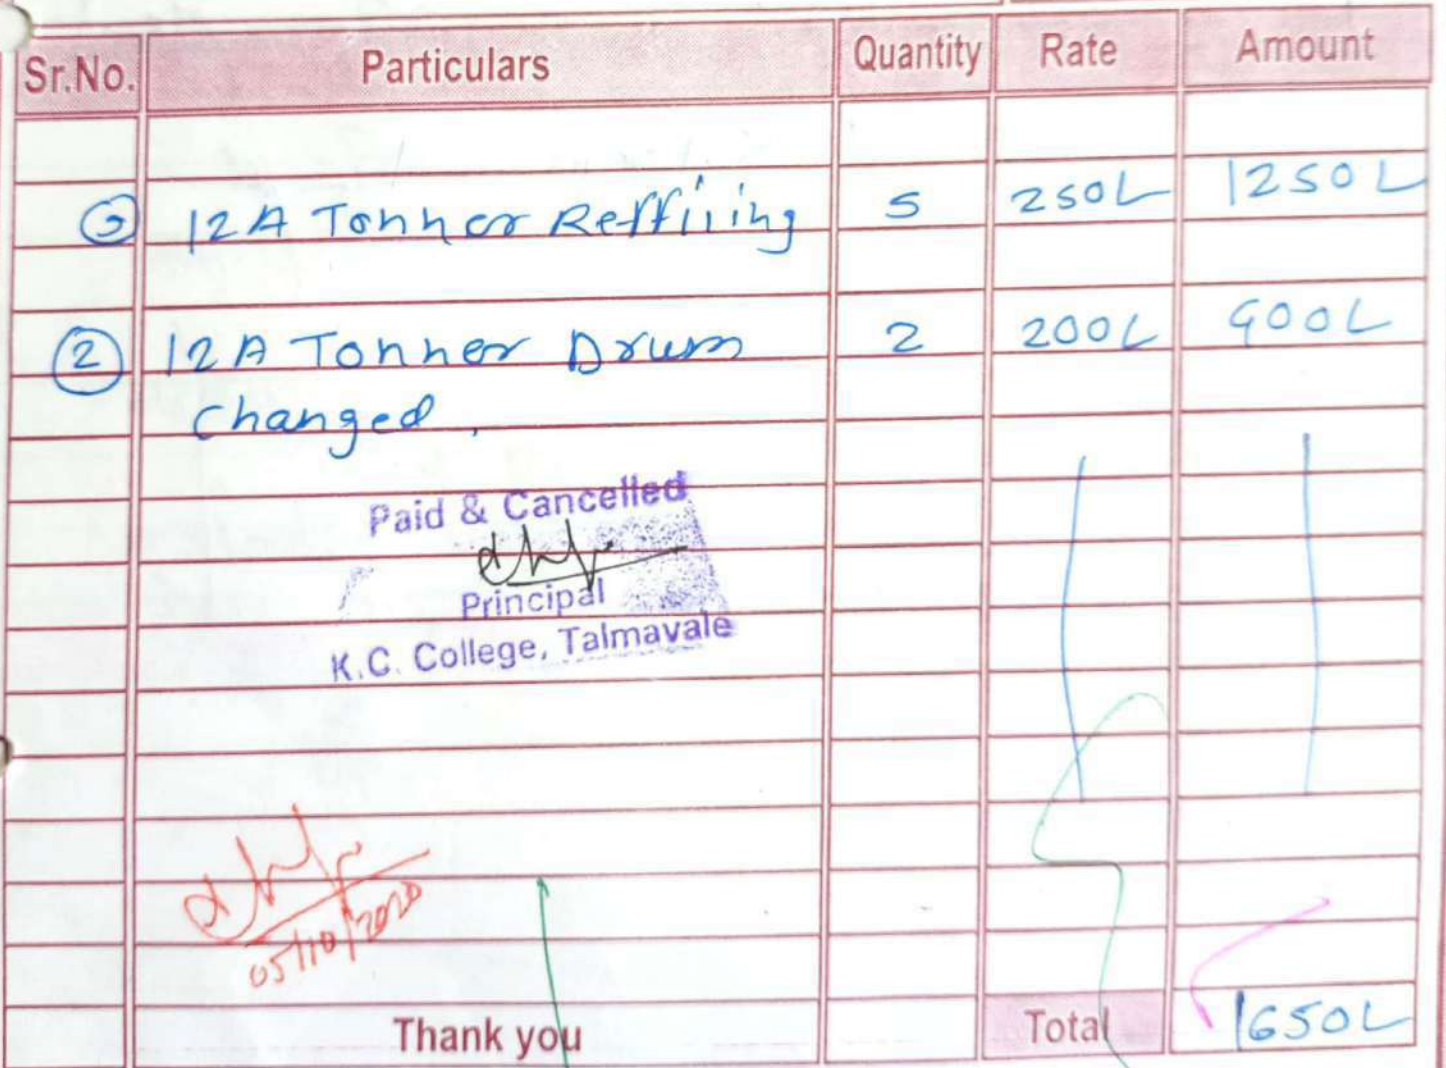 Sr.No. Particulars Quantity Rate Amount
12A Tonner Reffiling 5 250L 1250L
② 12A Tonner Drum 2 200L 400L
changed.
Paid & Cancelled
Principal
K.C. College, Talmavale
05/10/2020
Thank you Total 1650L